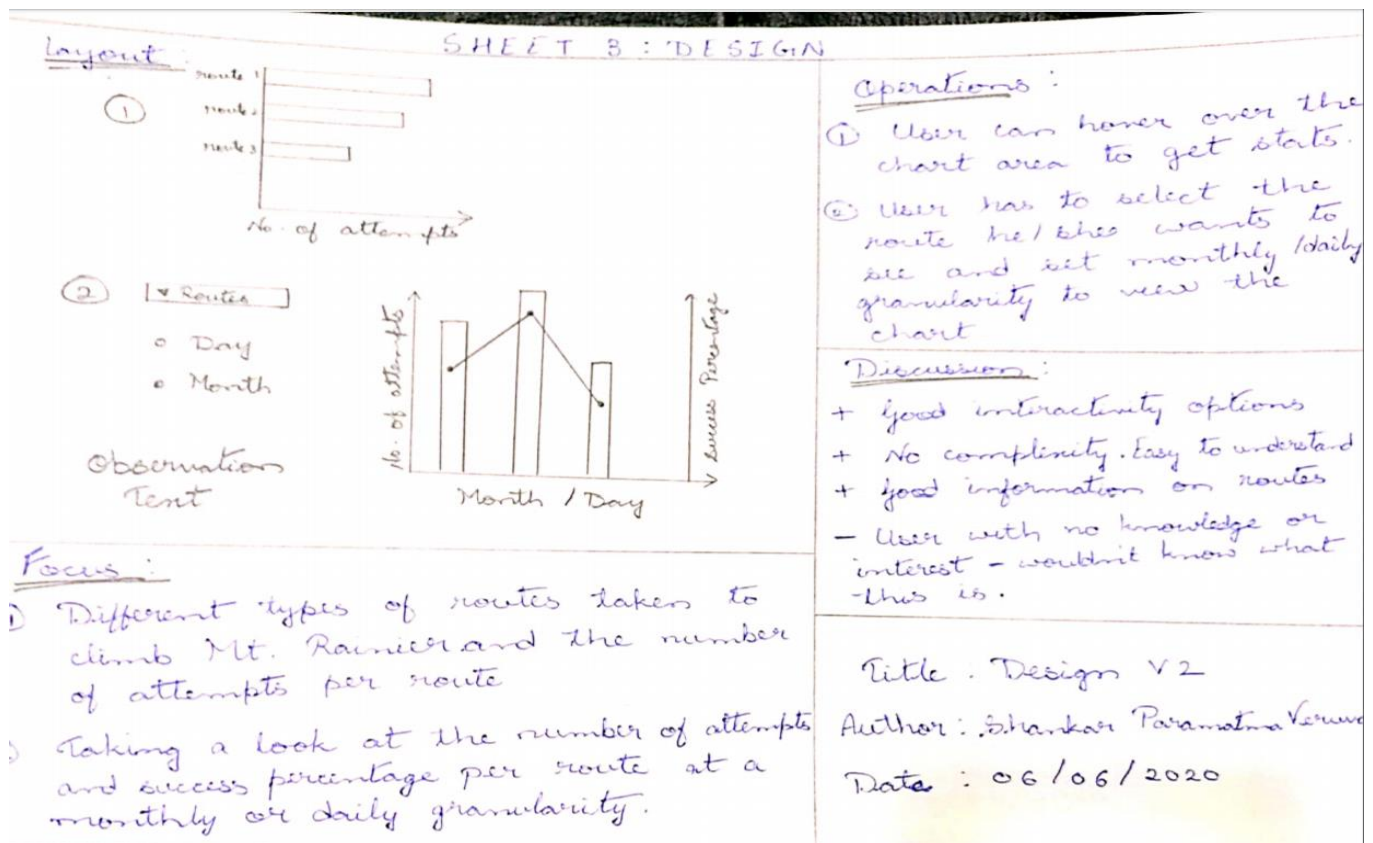 SHEET 3 : DESIGN
Layout :
①
route 1
route 2
route 3
No. of attempts
②
▾ Routes
Day
Month
Observation
Text
No. of attempts
Success Percentage
Month / Day
Focus :
① Different types of routes taken to
climb Mt. Rainier and the number
of attempts per route
Taking a look at the number of attempts
and success percentage per route at a
monthly or daily granularity.
Operations :
① User can hover over the
chart area to get stats.
② User has to select the
route he/shee wants to
see and set monthly /daily
granularity to view the
chart
Discussion :
+ Good interactivity options
+ No complixity. Easy to understand
+ Good information on routes
- User with no knowledge or
interest - wouldn't know what
this is.
Title : Design V2
Author : Shankar Paramatma
Date : 06/06/2020